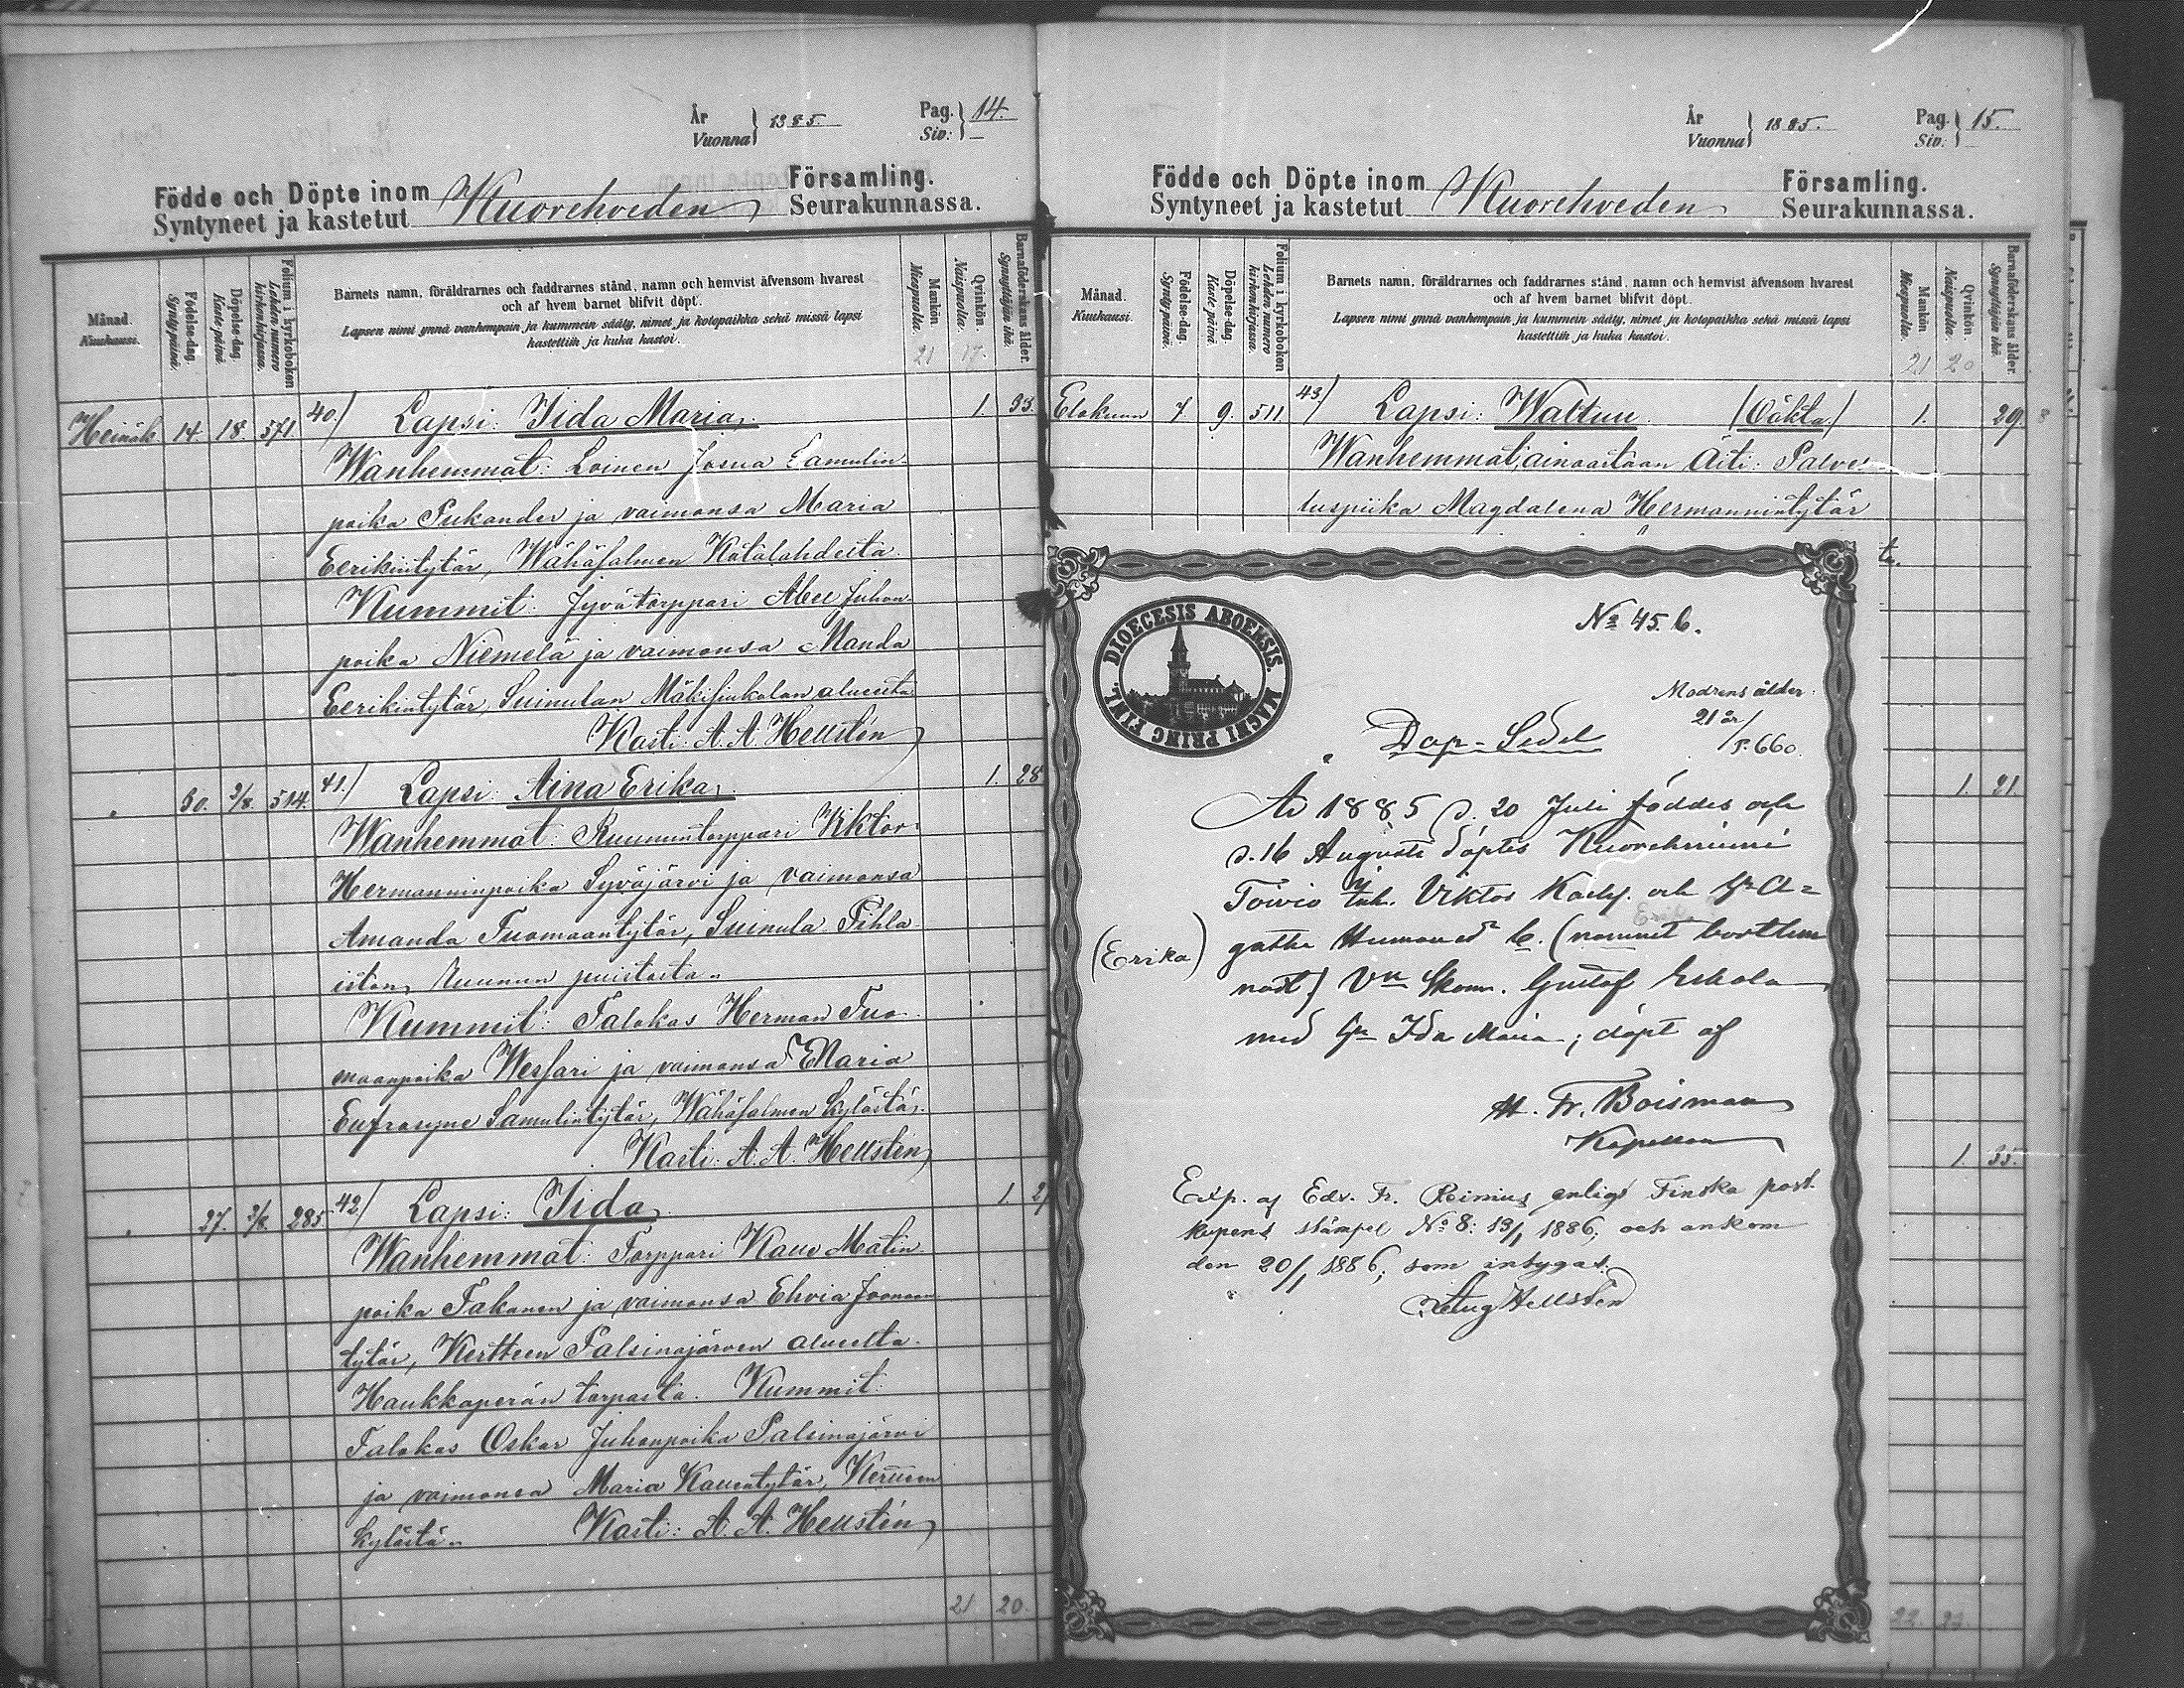 År
Vuonna } 1885.
Pag.
Siv: } 14.
Födde och Döpte inom
Syntyneet ja kastetut
Kuorehveden
Församling.
Seurakunnassa.
Månad.
Kuukausi.
Födelse-dag.
Syntypäivä.
Döpelse-dag.
Kaste-päivä.
Folium i kyrkoboken
Lehden numero
kirkonkirjassa.
Barnets namn, föräldrarnes och faddrarnes stånd, namn och hemvist äfvensom hvarest
och af hvem barnet blifvit döpt.
Lapsen nimi ynnä vanhempain ja kummein sääty, nimet ja kotopaikka sekä missä lapsi
kastettiin ja kuka kastoi.
Mankön.
Miespuolta.
21
Qvinkön.
Naispuolta.
17.
Barnaföderskans ålder.
Synnyttäjän ikä.
Heinäk. 14. 18. 571. 40.) Lapsi: Iida Maria. 1. 33.
Wanhemmat: Loinen Josua Samulin-
poika Pukander ja vaimonsa Maria
Eerikintytär, Wähäsalmen Kätalahdesta.
Kummit: Jyvätorppari Abel Juhon-
poika Niemelä ja vaimonsa Manda
Eerikintytär, Suinulan alueelta
Kasti: A. A. Hellstén
" 30. 2/8. 514. 41.) Lapsi: Aina Erika. 1. 28
Wanhemmat: Ruununtorppari Viktor
Hermanninpoika Syväjärvi ja vaimonsa
Amanda Tuomaantytär, Suinula Pihla-
iston Ruunun puistosta.
Kummit: Talokas Herman Tuo-
maanpoika Wessari ja vaimonsa Maria
Eufrosyne Samulintytär, Wähäsalmen kylästä.
Kasti: A. A. Hellstén
" 27. 2/8. 285 42.) Lapsi: Iida. 1. 2
Wanhemmat: Torppari Kalle Matin-
poika Takanen ja vaimonsa Elwia Joonaan-
tytär, Kertteen Palsinajärven alueelta
Haukkaperän torpasta. Kummit:
Talokas Oskar Juhonpoika Palsinajärvi
ja vaimonsa Maria Kallentytär,
kylästä. Kasti: A. A. Hellstén
21 20.
År
Vuonna } 1885.
Pag.
Siv. } 15.
Födde och Döpte inom
Syntyneet ja kastetut
Kuorehveden
Församling.
Seurakunnassa.
Månad.
Kuukausi.
Födelse-dag.
Syntypäivä.
Döpelse-dag.
Kaste-päivä.
Folium i kyrkoboken
Lehden numero
kirkonkirjassa.
Barnets namn, föräldrarnes och faddrarnes stånd, namn och hemvist äfvensom hvarest
och af hvem barnet blifvit döpt.
Lapsen nimi ynnä vanhempain ja kummein sääty, nimet ja kotopaikka sekä missä lapsi
kastettiin ja kuka kastoi.
Mankön
Miespuolta.
21
Qvinkön.
Naispuolta.
20
Barnaföderskans ålder.
Synnyttäjän ikä.
Elokuun 7 9. 511. 43.) Lapsi: Walttu. (Oäkta.) 1. 29.
Wanhemmat, ainoastaan Äiti: Palve-
luspiika Magdalena Hermannintytär
t.
DIOECESIS ABOENSIS. MAGNI PRINC FINL.
No 45. b.
Modrens ålder:
21 år/
P. 660.
Dop-Sedel
1. 21.
År 1885 d. 20 Juli föddes och
d. 16 Augusti döptes Kuorehniemi
Toivio Inh. Viktor Karlss. och Hu A=
Erika
(Erika) gatha b. (namnet bortlem-
nadt) Vn Skom. Gustaf Eskola
med Hu Ida Maria; döpt af
H. Fr. Boisman
Kapellan
1. 35.
Exp. af Edv. Fr. Reinius enligt Finska post-
kupens stämpel No 8: 19/1 1886, och ankom
den 20/1 1886; som intygas.
Aug Hellstén
22. 23.